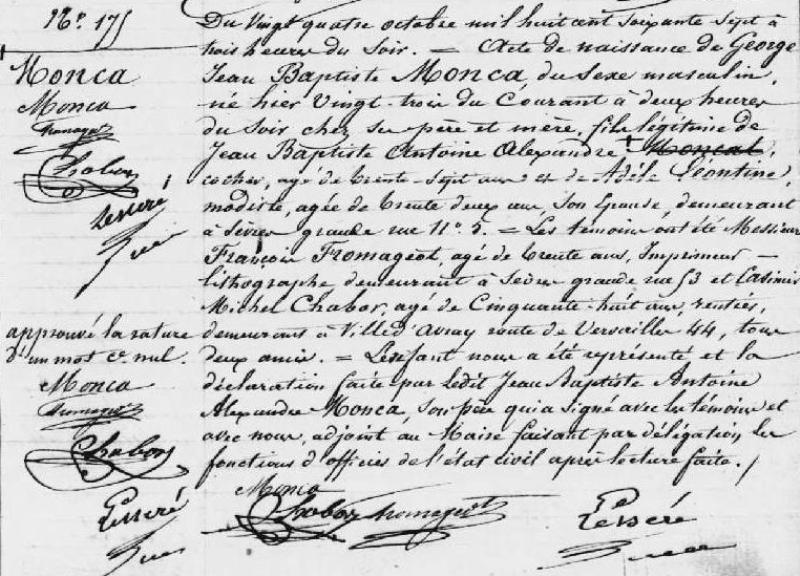 No. 175
Monca
Monca
Fromageot
Chabor
Lesseré
Du Vingt quatre octobre mil huit cent soixante sept à
trois heures du soir. = Acte de naissance de George
Jean Baptiste Monca du sexe masculin,
né hier Vingt-trois du Courant à deux heures
du soir chez ses père et mère, fils légitime de
Jean Baptiste Antoine Alexandre Moncal,
cocher, agé de trente-sept ans et de Adèle Léontine,
modiste, agée de trente deux ans, son épouse, demeurant
à Sèvres grande rue No. 5. = Les témoins ont été Messieurs
François Fromageot, agé de trente ans, Imprimeur –
lithographe demeurant à Sèvres grande rue 53 et Casimir
Michel Chabor, agé de Cinquante-huit ans, rentier,
demeurant à Ville d'avray route de Versailles 44, tous
deux amis. = L'enfant nous a été représenté et la
déclaration faite par ledit Jean Baptiste Antoine
Alexandre Monca, son père qui a signé avec les témoins et
avec nous, adjoint au Maire faisant par délégation les
fonctions d'officier de l'état civil après lecture faite. /
approuvé la rature
d'un mot et nul.
Monca
Fromageot
Chabor
Lesseré
Monca
Chabor Fromageot
Lesseré